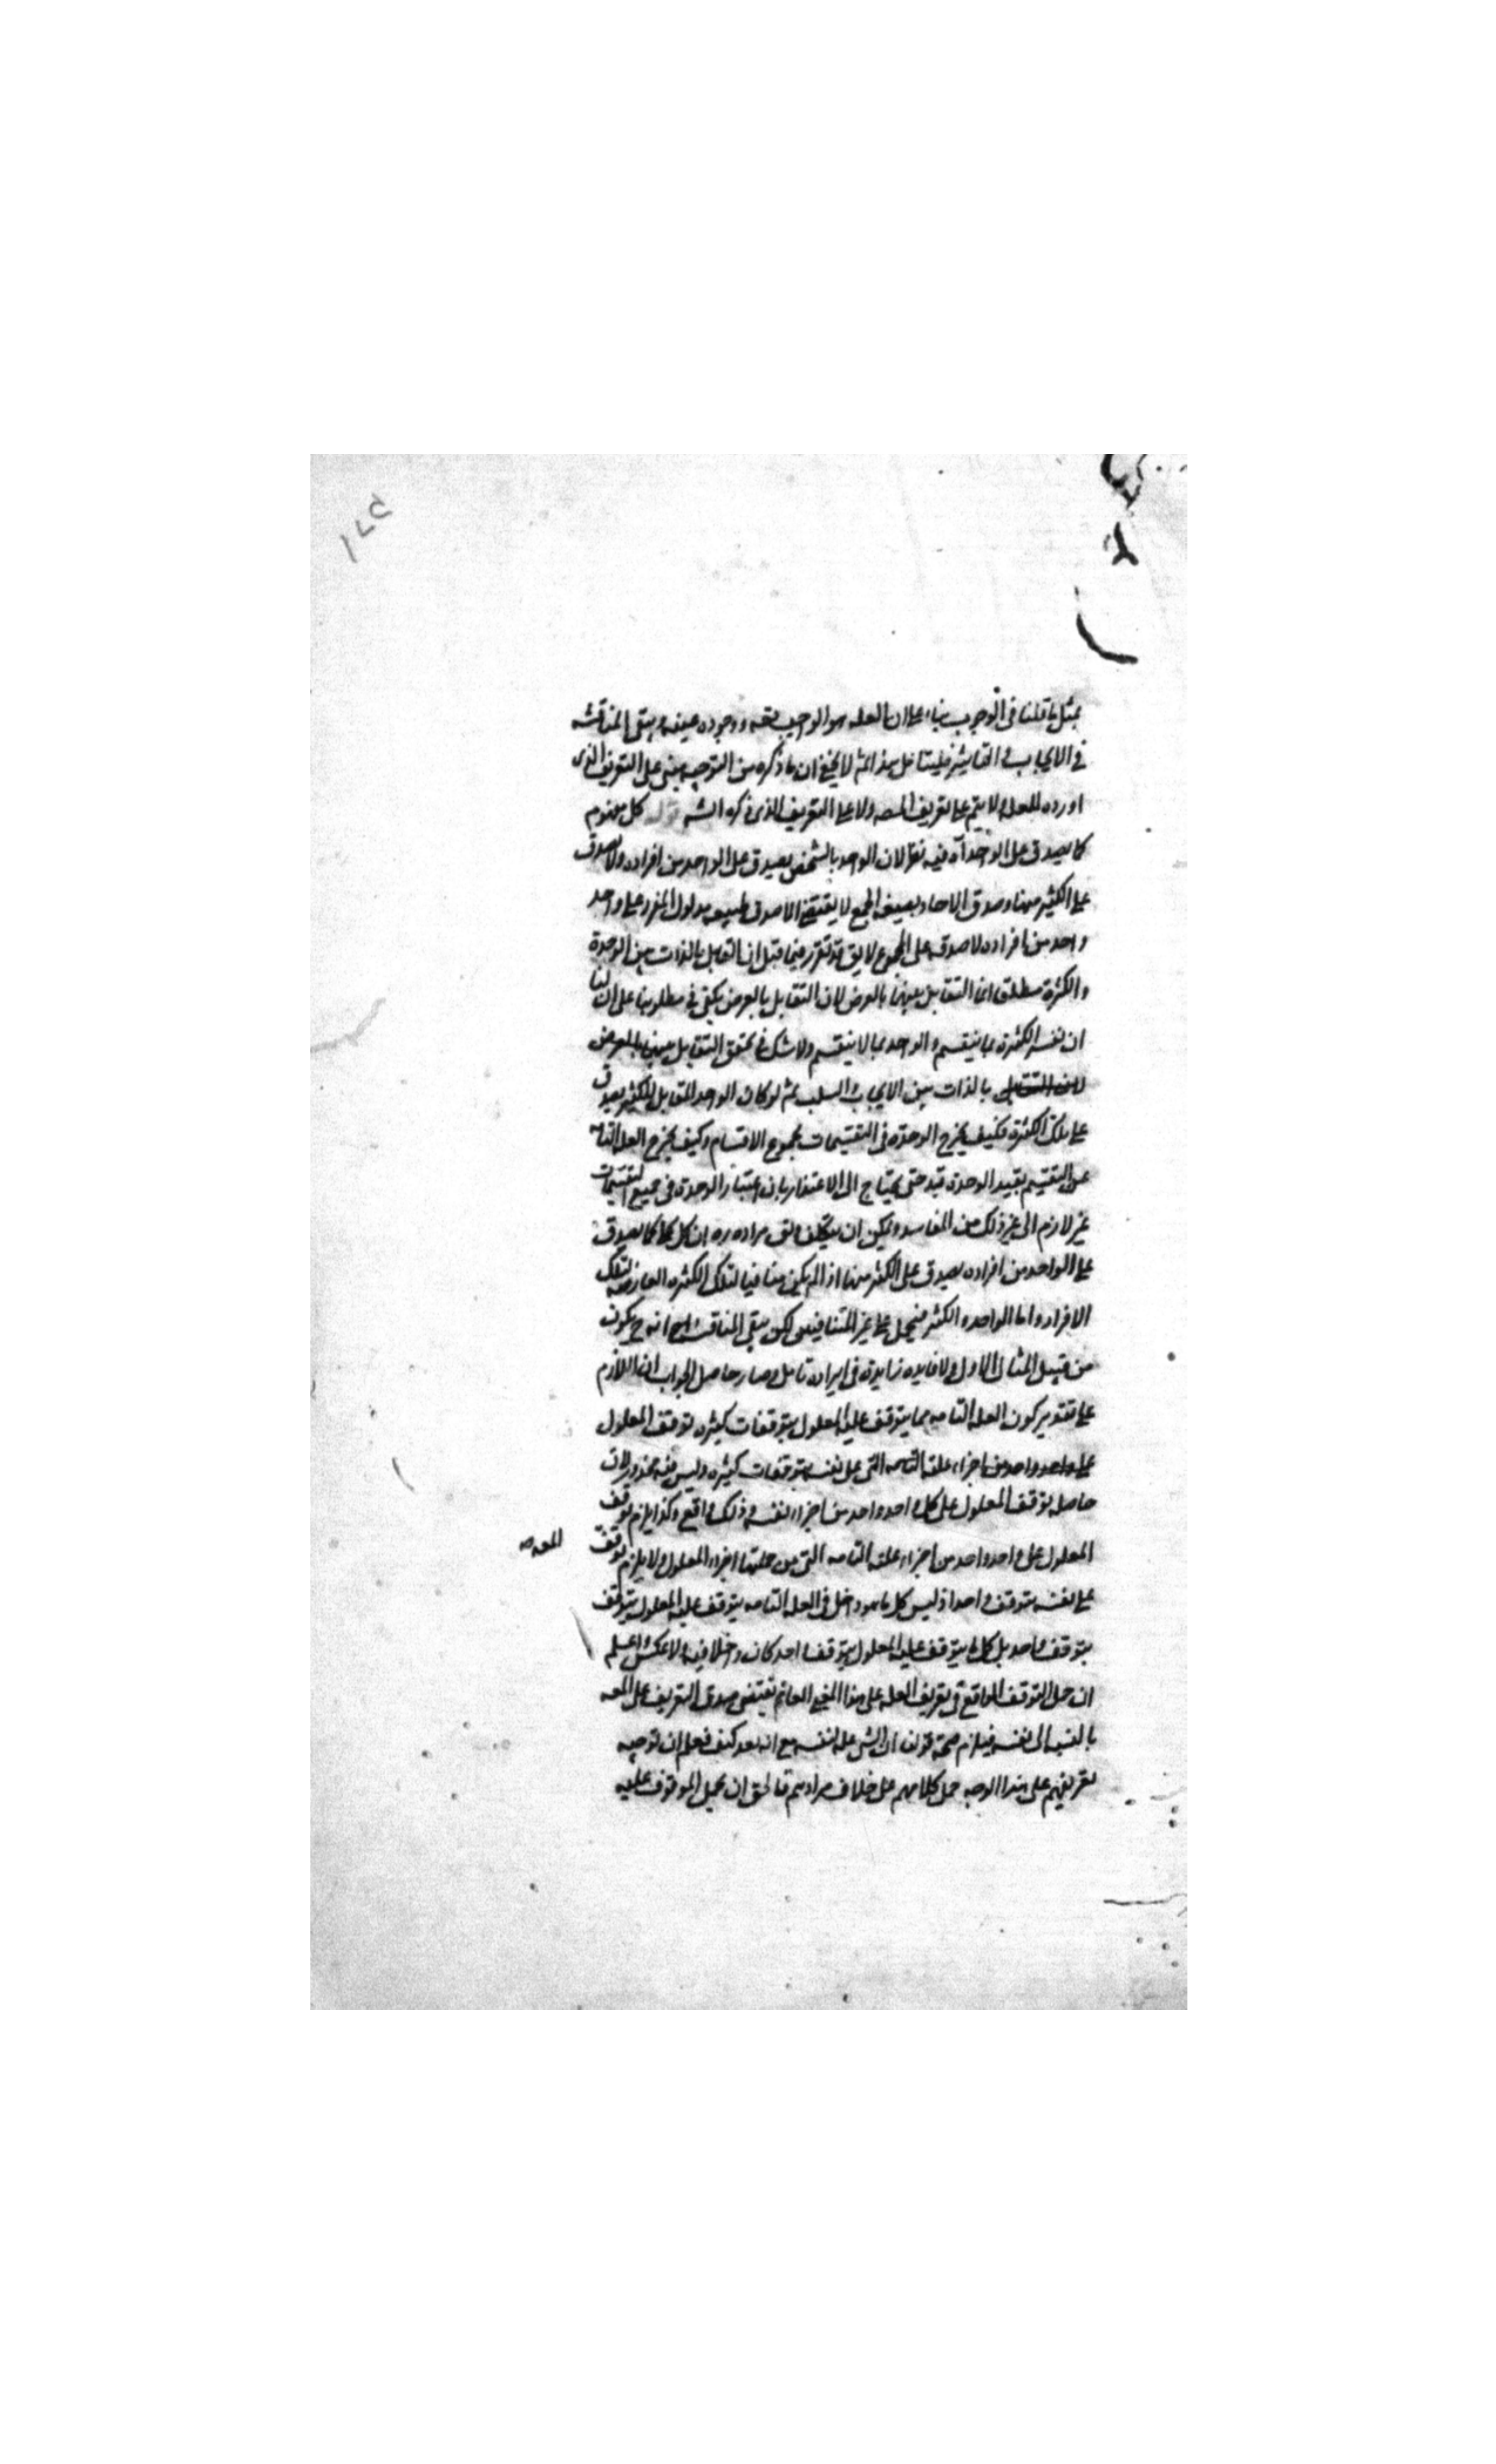 بمثل ما قلنا فى الوجوب بناء على ان العله هو الواجب نفسه ووجوده عينه ويبقى المناقشه
فى الايجاب والتاثير فليتامل هذا ثم لا يخفى ان ما ذكره من التوجيه مبنى على التعريف الذى
اورده للعله ولا يتم على تعريف المصه ولا على التعريف الذى ذكره الشه كل مفهوم
كما يصدق على الواحد آه فيه نظر لان الواحد بالشخص يصدق على الواحد من افراده ولا يصدق
على الكثير منها وصدق الاحاد بصيغه الجمع لا يقتضى الا صدق طبيعه مدلول المفرد على واحد
واحد من افراده لا صدقه على المجموع لا يق قد تقرر فيما قبل ان التقابل بالذات بين الوحدة
والكثرة مطلق ان التقابل بينهما بالعرض لان التقابل بالعرض يكفى فى مطلوبنا على ان لنا
ان نفسر الكثرة بما ينقسم والواحد بما لا ينقسم ولا شك فى تحقق التقابل بينهما بالعرض
لان التقابل بالذات بين الايجاب والسلب ثم لو كان الواحد المقابل للكثير يصدق
على تلك الكثرة فكيف يخرج الوحدة فى التقسيمات مجموع الاقسام وكيف يخرج العله التامه
عن التقسيم بقيد الوحدة قيد حتى يحتاج الى الاعتذار بان اعتبار الوحدة فى جميع التقسيمات
غير لازم الى غير ذلك من المفاسد ويمكن ان يتكلف ويق مراده ره ان كل كما يصدق
على الواحد من افراده يصدق على الكثير منها اذا لم يكن منافيا لتلك الكثره العارضه لتلك
الافراد واما الواحد والكثير فيحمل على غير المتنافيين لكن يبقى المناقشه انه ح يكون
من قبيل المثال الاول ولا فايده زايدة فى ايراده تامل وصار حاصل الجواب ان اللازم
على تقدير كون العله التامه مما يتوقف عليه المعلول بتوقفات كثيره توقف المعلول
على واحد واحد من اجزاء علته التامه التى على نفسه بتوقفات كثيره وليس فيه محذور لان
حاصله توقف المعلول على كل واحد واحد من اجزاء نفسه وذلك واقع وكذا يلزم توقف
المعلول على واحد واحد من اجزاء علته التامه التى من جملتها اجزاء المعلول ولا يلزم توقف المعه
على نفسه بتوقف واحد اذ ليس كل ما هو داخل فى العله التامه يتوقف عليه المعلول بتوقف
بتوقف واحد بل كل ما يتوقف عليه المعلول بتوقف واحد كان داخلا فيه ولا عكس واعلم
ان حمل التوقف الواقع فى تعريف العله على هذا المعنى العام يقتضى صدق التعريف على المعه
بالنسبه الى نفسه فيلزم صحة قولنا ان الشى عله لنفسه مع انه بعد كيف فعلم ان توجيه
تعريفهم على هذا الوجه حمل كلامهم على خلاف مرادهم فالحق ان يحمل الموقوف عليه